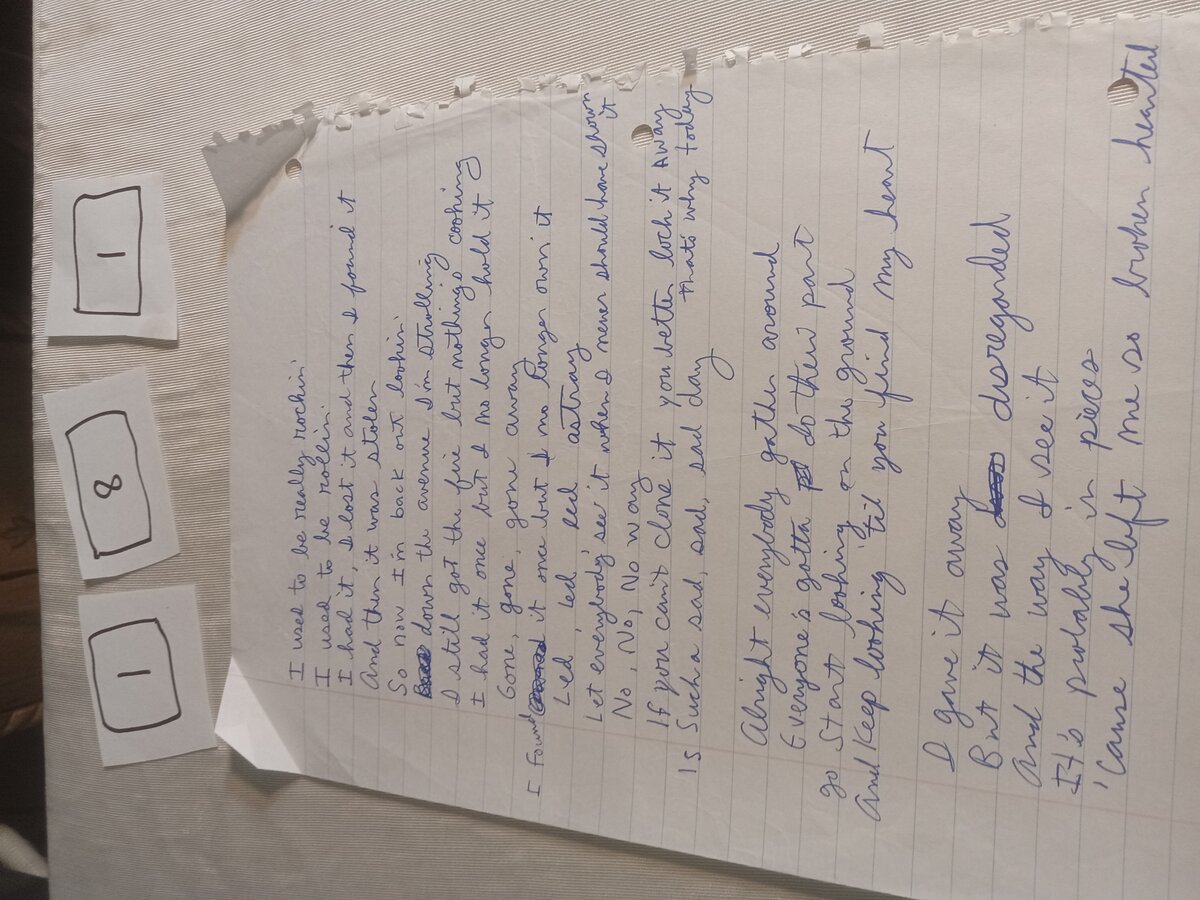 1 8 1
I used to be really rockin'
I used to be rollin'
I had it, I lost it and then I found it
And then it was stolen
So now I'm back out lookin'
down the avenue I'm strolling
I still got the fire but nothing's cooking
I had it once but I no longer hold it
Gone, gone, gone, gone away
I Found it once but I no longer own it
Led, led, led astray
Let everybody see it when I never should have shown it
No, No, No, No way
If you can't clone it you better lock it Away
Is Such a sad, sad, sad, sad day that's why today
Alright everybody gather around
Everyone's gotta do their part
go Start looking on the ground
And Keep looking 'til you find my heart
I gave it away
But it was disregarded
And the way I see it
It's probably in pieces
'Cause she left me so broken hearted